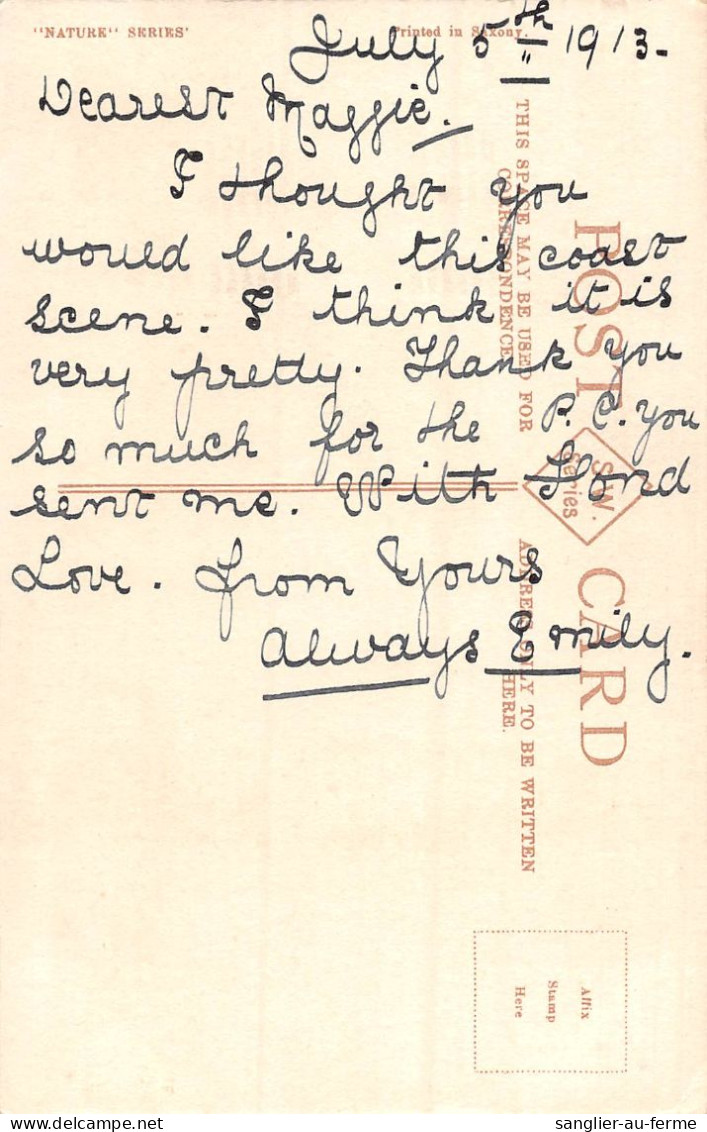 "NATURE" SERIES'
Printed in Saxony.
July 5th 1913-
Dearest Maggie.
I thought you
would like this coast
scene. I think it is
very pretty. Thank you
so much for the P.C. you
sent me. With Fond
Love. from Yours
Always Emily.
THIS SPACE MAY BE USED FOR
CORRESPONDENCE
POST CARD
S.W.
Series
ADDRESS ONLY TO BE WRITTEN
HERE.
Affix
Stamp
Here
delcampe.net
sanglier-au-ferme